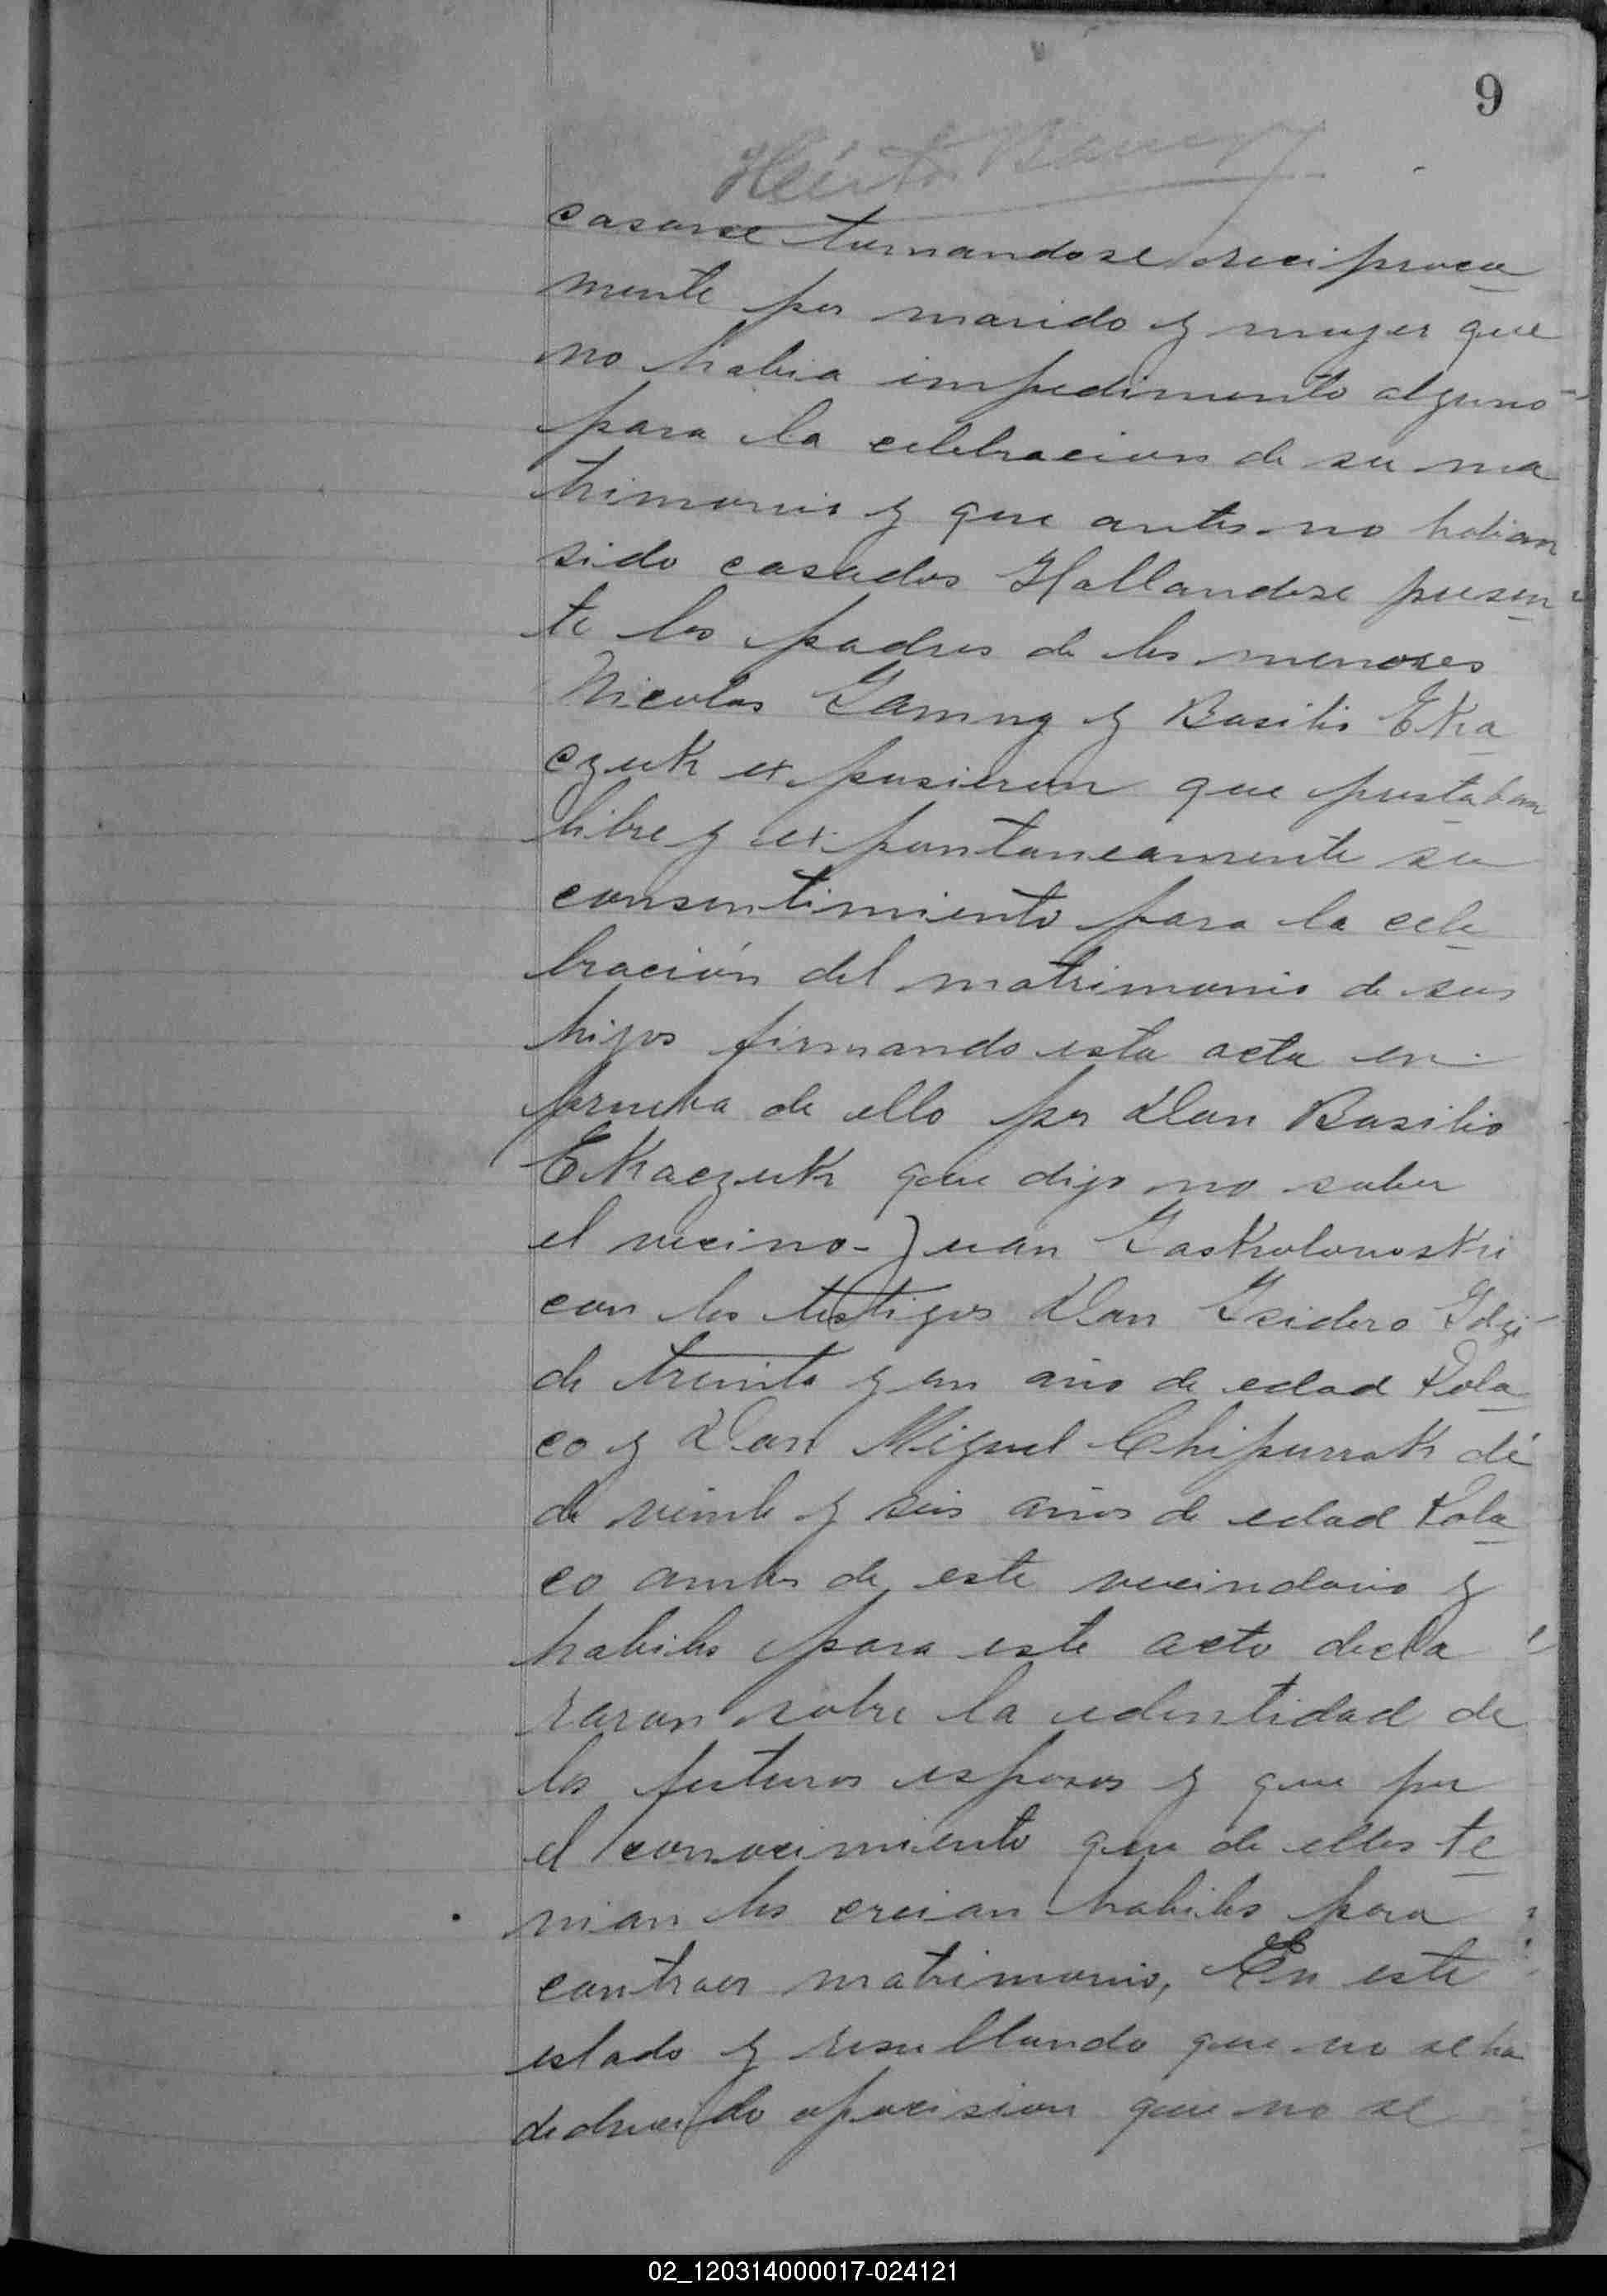 9
casarse tomandose reciproca
mente por marido y mujer que
no habia impedimento alguno
para la celebracion de su ma
trimonio y que antes no habian
sido casados Hallandose presen
te los padres de los menores
Nicolas y Basilio Tka
czuk expusieron que prestaban
libre y expontaneamente su
consentimiento para la cele
bración del matrimonio de sus
hijos firmando esta acta en
prueba de ello por Don Basilio
Tkaczuk que dijo no saber
el vecino Juan
con los testigos Don Isidero
de treinta y un año de edad Pola
co y Don Miguel de
de veinte y seis años de edad Pola
co ambos de este vecindario y
habiles para este acto decla
raron sobre la identidad de
los futuros esposos y que por
el conocimiento que de ellos te
nian los creian habiles para
contraer matrimonio, En este
estado y resultando que no se ha
deducido oposision que no se
02_120314000017-024121